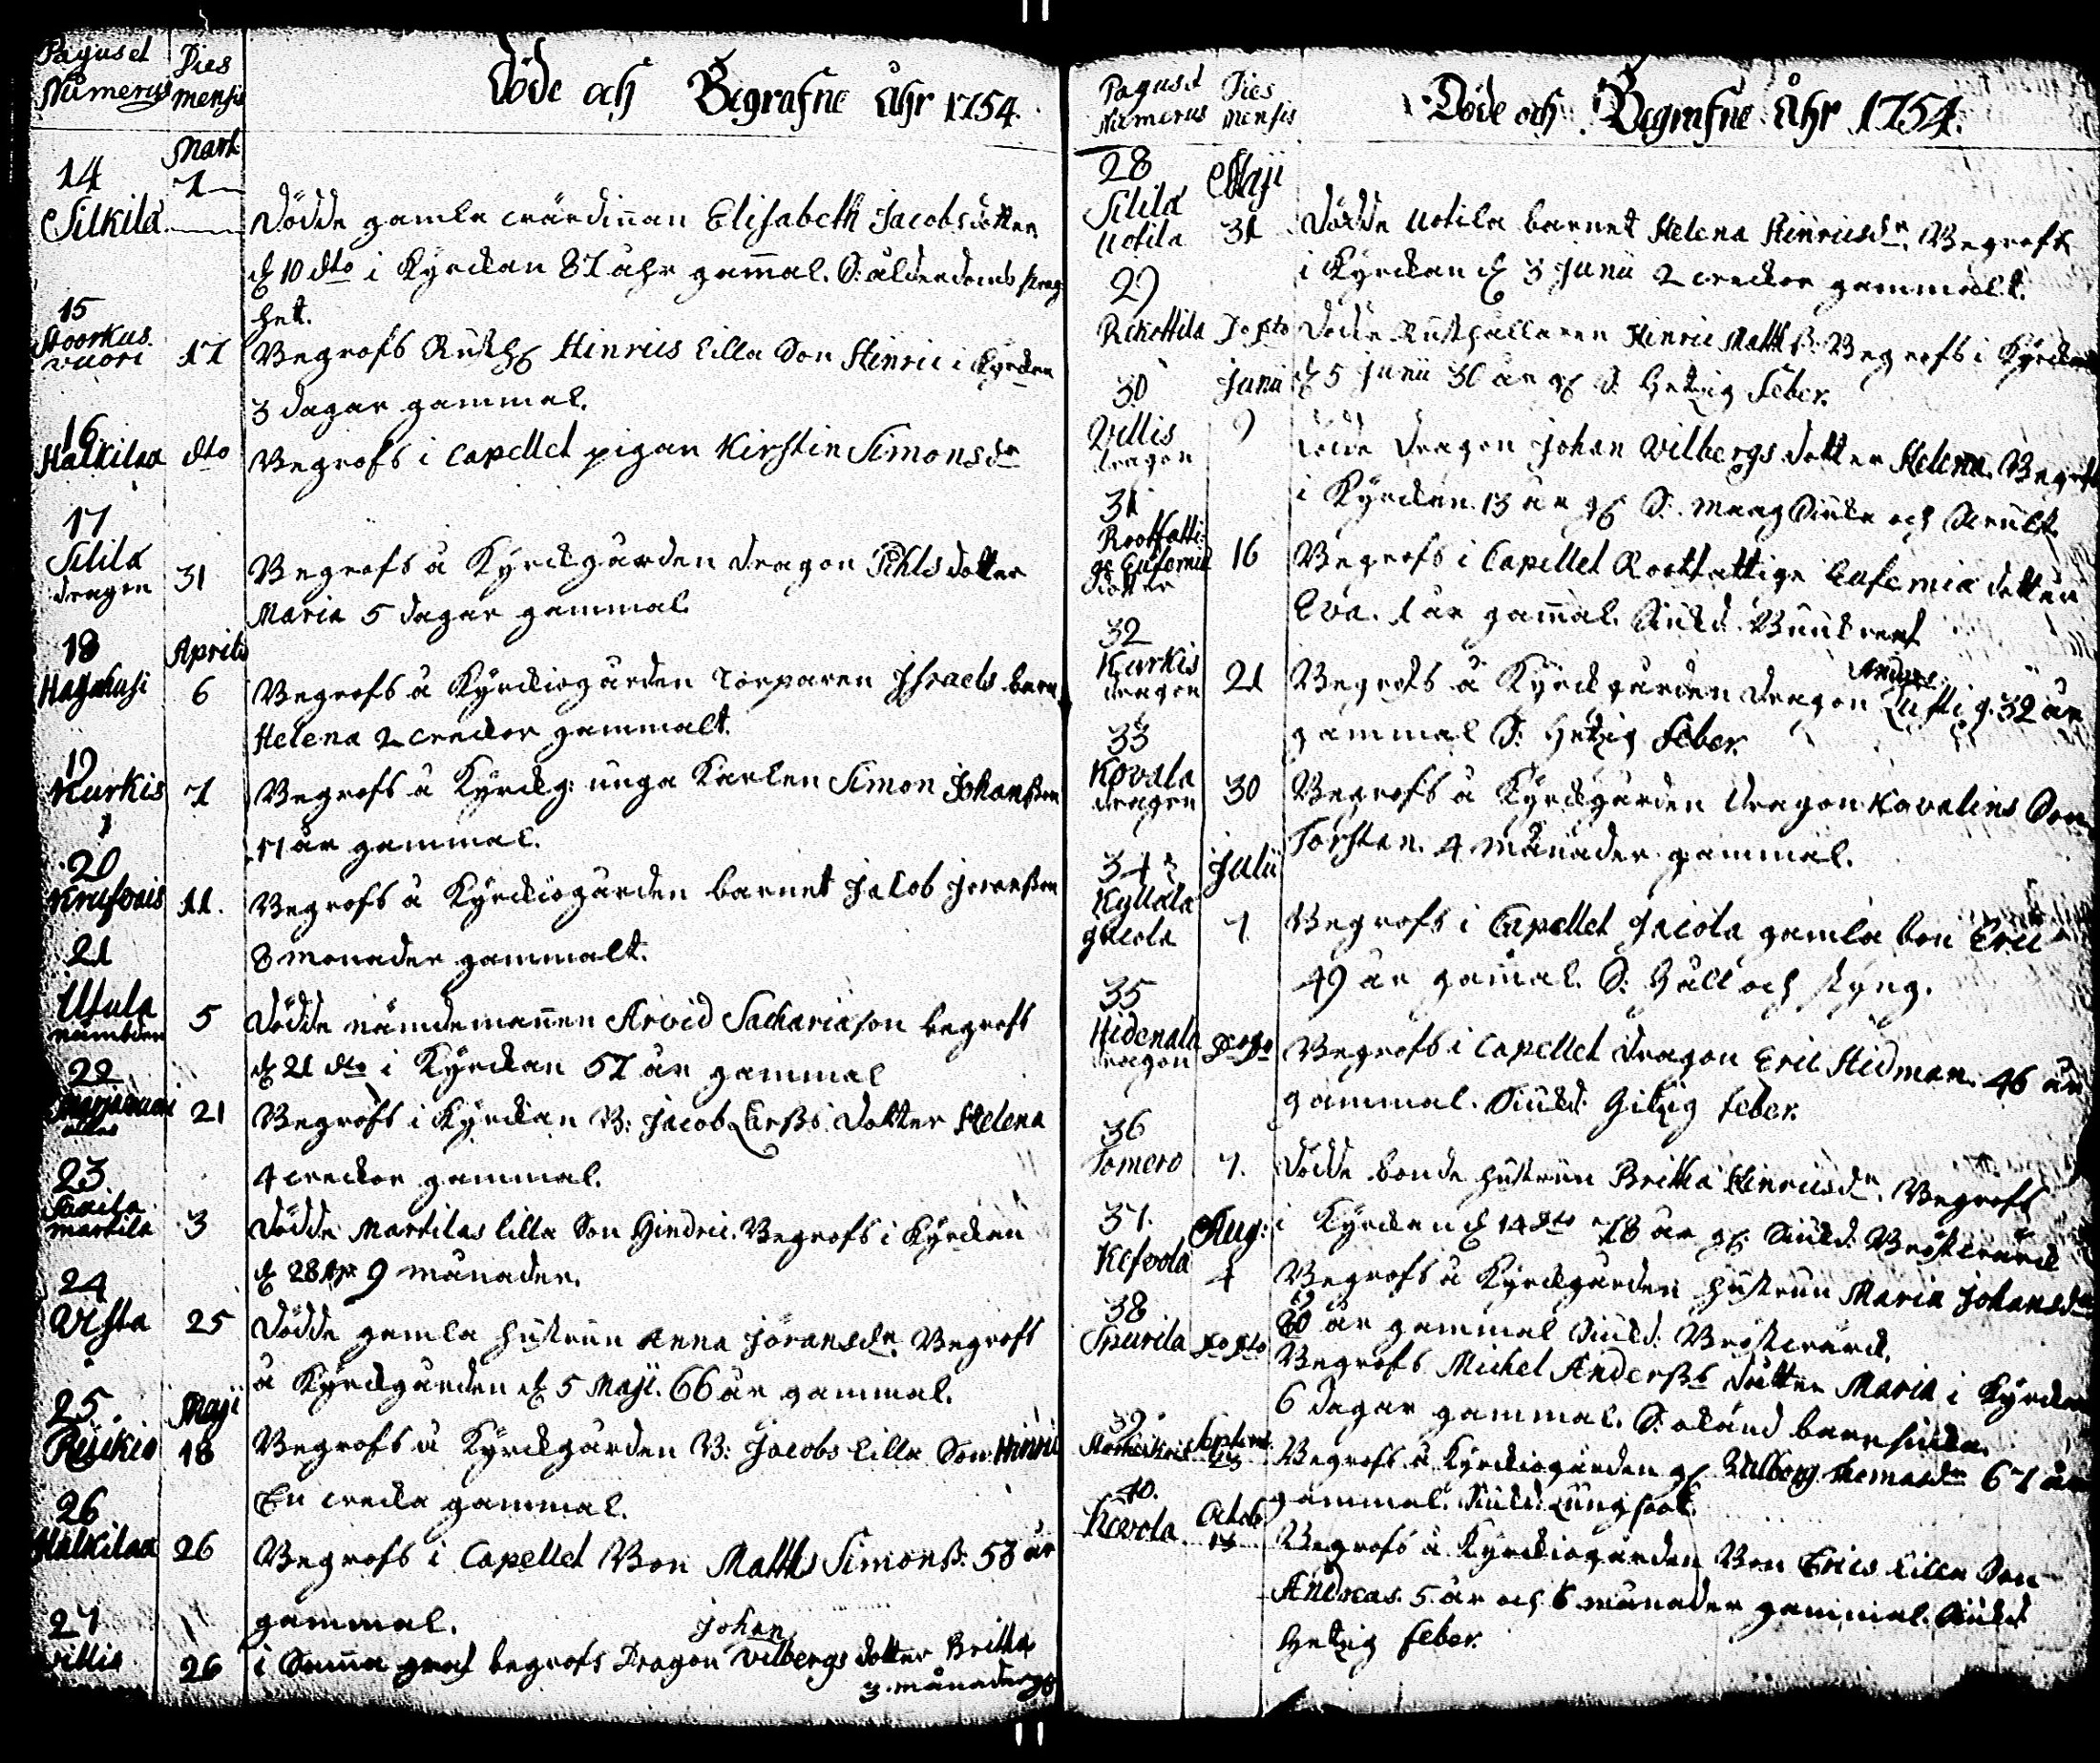 Pagus et Numerus
Dies mensis
Döde och Begrafne Åhr 1754.
Mart.
14 Silkilä 7 Dödde gamla wärdinnan Elisabeth Jacobsdotter
d. 10 dto i Kyrckan 87 åhr gammal. S: ålderdoms
het.
15 Stoorkusvuori 17 Begrofs Rusth: Hinrics lilla Son Hinric i Kyrckan
3 dagar gammal.
16 Halkilaa dto Begrofs i Capellet pigan Kirstin Simonsdr
17 Sililä dragon 31 Begrofs å Kyrckgården dragon Pihls dotter
Maria 5 dagar gammal.
Aprilis
18 Hagahusi 6 Begrofs å Kyrckiogården Torparen Israels barn
Helena 2 weckor gammalt.
19 Kurkis 7 Begrofs å Kyrckg: unga Karlen Simon Johansson
17 år gammal.
20 11. Begrofs å Kyrckiogården barnet Jacob Joransson
8 monader gammalt.
21 Utula nämbdem 5 Dödde nämdemannen Arvid Sachariason begrofs
d. 21 dto i Kyrckan 57 år gammal
22 21 Begrofs i Kyrckan B: Jacob Larss: dotter Helena
4 weckor gammal.
23 Saxila martila 3 Dödde Martilas lilla Son Hindric. Begrofs i Kyrckan
d. 28 Apr 9 månader.
24 Vista 25 Dödde gamla hustrun Anna Joransdr. Begrofs
å Kyrckgården d. 5 Maji. 66 år gammal.
Maji
25. 18 Begrofs å Kyrckgården B: Jacobs lilla Son Hinric
En wecka gammal.
26 Halkilaa 26 Begrofs i Capellet Bon Matths Simonss: 58 år
gammal.
27 villis 26 i Samma graf begrofs Dragon Johan Vilbergs dotter Britta
3. månader
Pagus et Numerus
Dies mensis
Döde och Begrafne Åhr 1754.
Maji
28 Sililä Uotila 31 Dödde Uotila barnet Helena Hinricsdr. Begrofs
i Kyrckan d. 3 Junii 2 weckor gammalt.
29 Rekottila Dödde Rusthållaren Hinric Matthss: Begrofs i Kyrckan
Junii
d. 5 Junii 36 år gl. S. Hetzig Feber.
30 Villis dragon 9 Dödde Dragon Johan Vilbergs dotter Helena. Begrofs
i Kyrckan. 13 år gl. S:
31 Rootfattige Eufemiae dotter 16 Begrofs i Capellet Rootfattige Eufemiae dotter
Eva. 1 år gammal.
32 Kurkis dragon 21 Begrofs å Kyrckgården Dragon Anders Lustig. 32 år
gammal S: Hetzig Feber.
33 Kovala dragon 30 Begrofs å Kyrckgården Dragon Kavalins Son
Torstan. 4 månader gammal.
Julii
34 Kyllälä Jacola 7. Begrofs i Capellet Jacola gamla bon Eric
49 år gammal. S: håll och styng.
35 Hidenala dragon Begrofs i Capellet Dragon Eric Hidman. 46 år
gammal. Siukd. Hitzig feber.
36 Tomero 7. Dödde bonde hustrun Britha Hinricsdr. Begrofs
i Kyrckan d. 14 dto 78 år gl. Siukd. Bröstwärck
Aug:
37. 4 Begrofs å Kyrckgården hustrun Maria Johansdr
år gammal Siukd. Bröstwärck.
38 Spurila Begrofs Michel Anderss: dotter Maria i Kyrckan
6 dagar gammal. S. okänd barnsiuka.
39 Septemb. Begrofs å Kyrckiogården gl. Valborg Thomasdr 67 år
gammal. Siukd. Lungsoot.
40. Kovola Octob. Begrofs å Kyrckiogården Bon Erics lilla Son
Andreas. 5 år och 6 månader gammal. Siukd.
Hetzig feber.